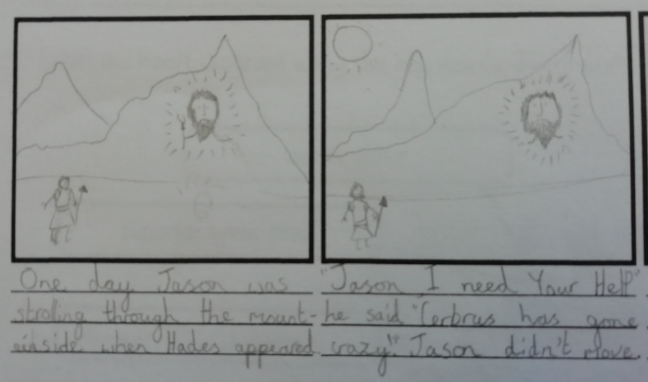 One day Jason was
stroling through the mount-
ainside when Hades appeared.
"Jason I need Your Help"
he said "Cerbrus has gone
crazy". Jason didn't move.